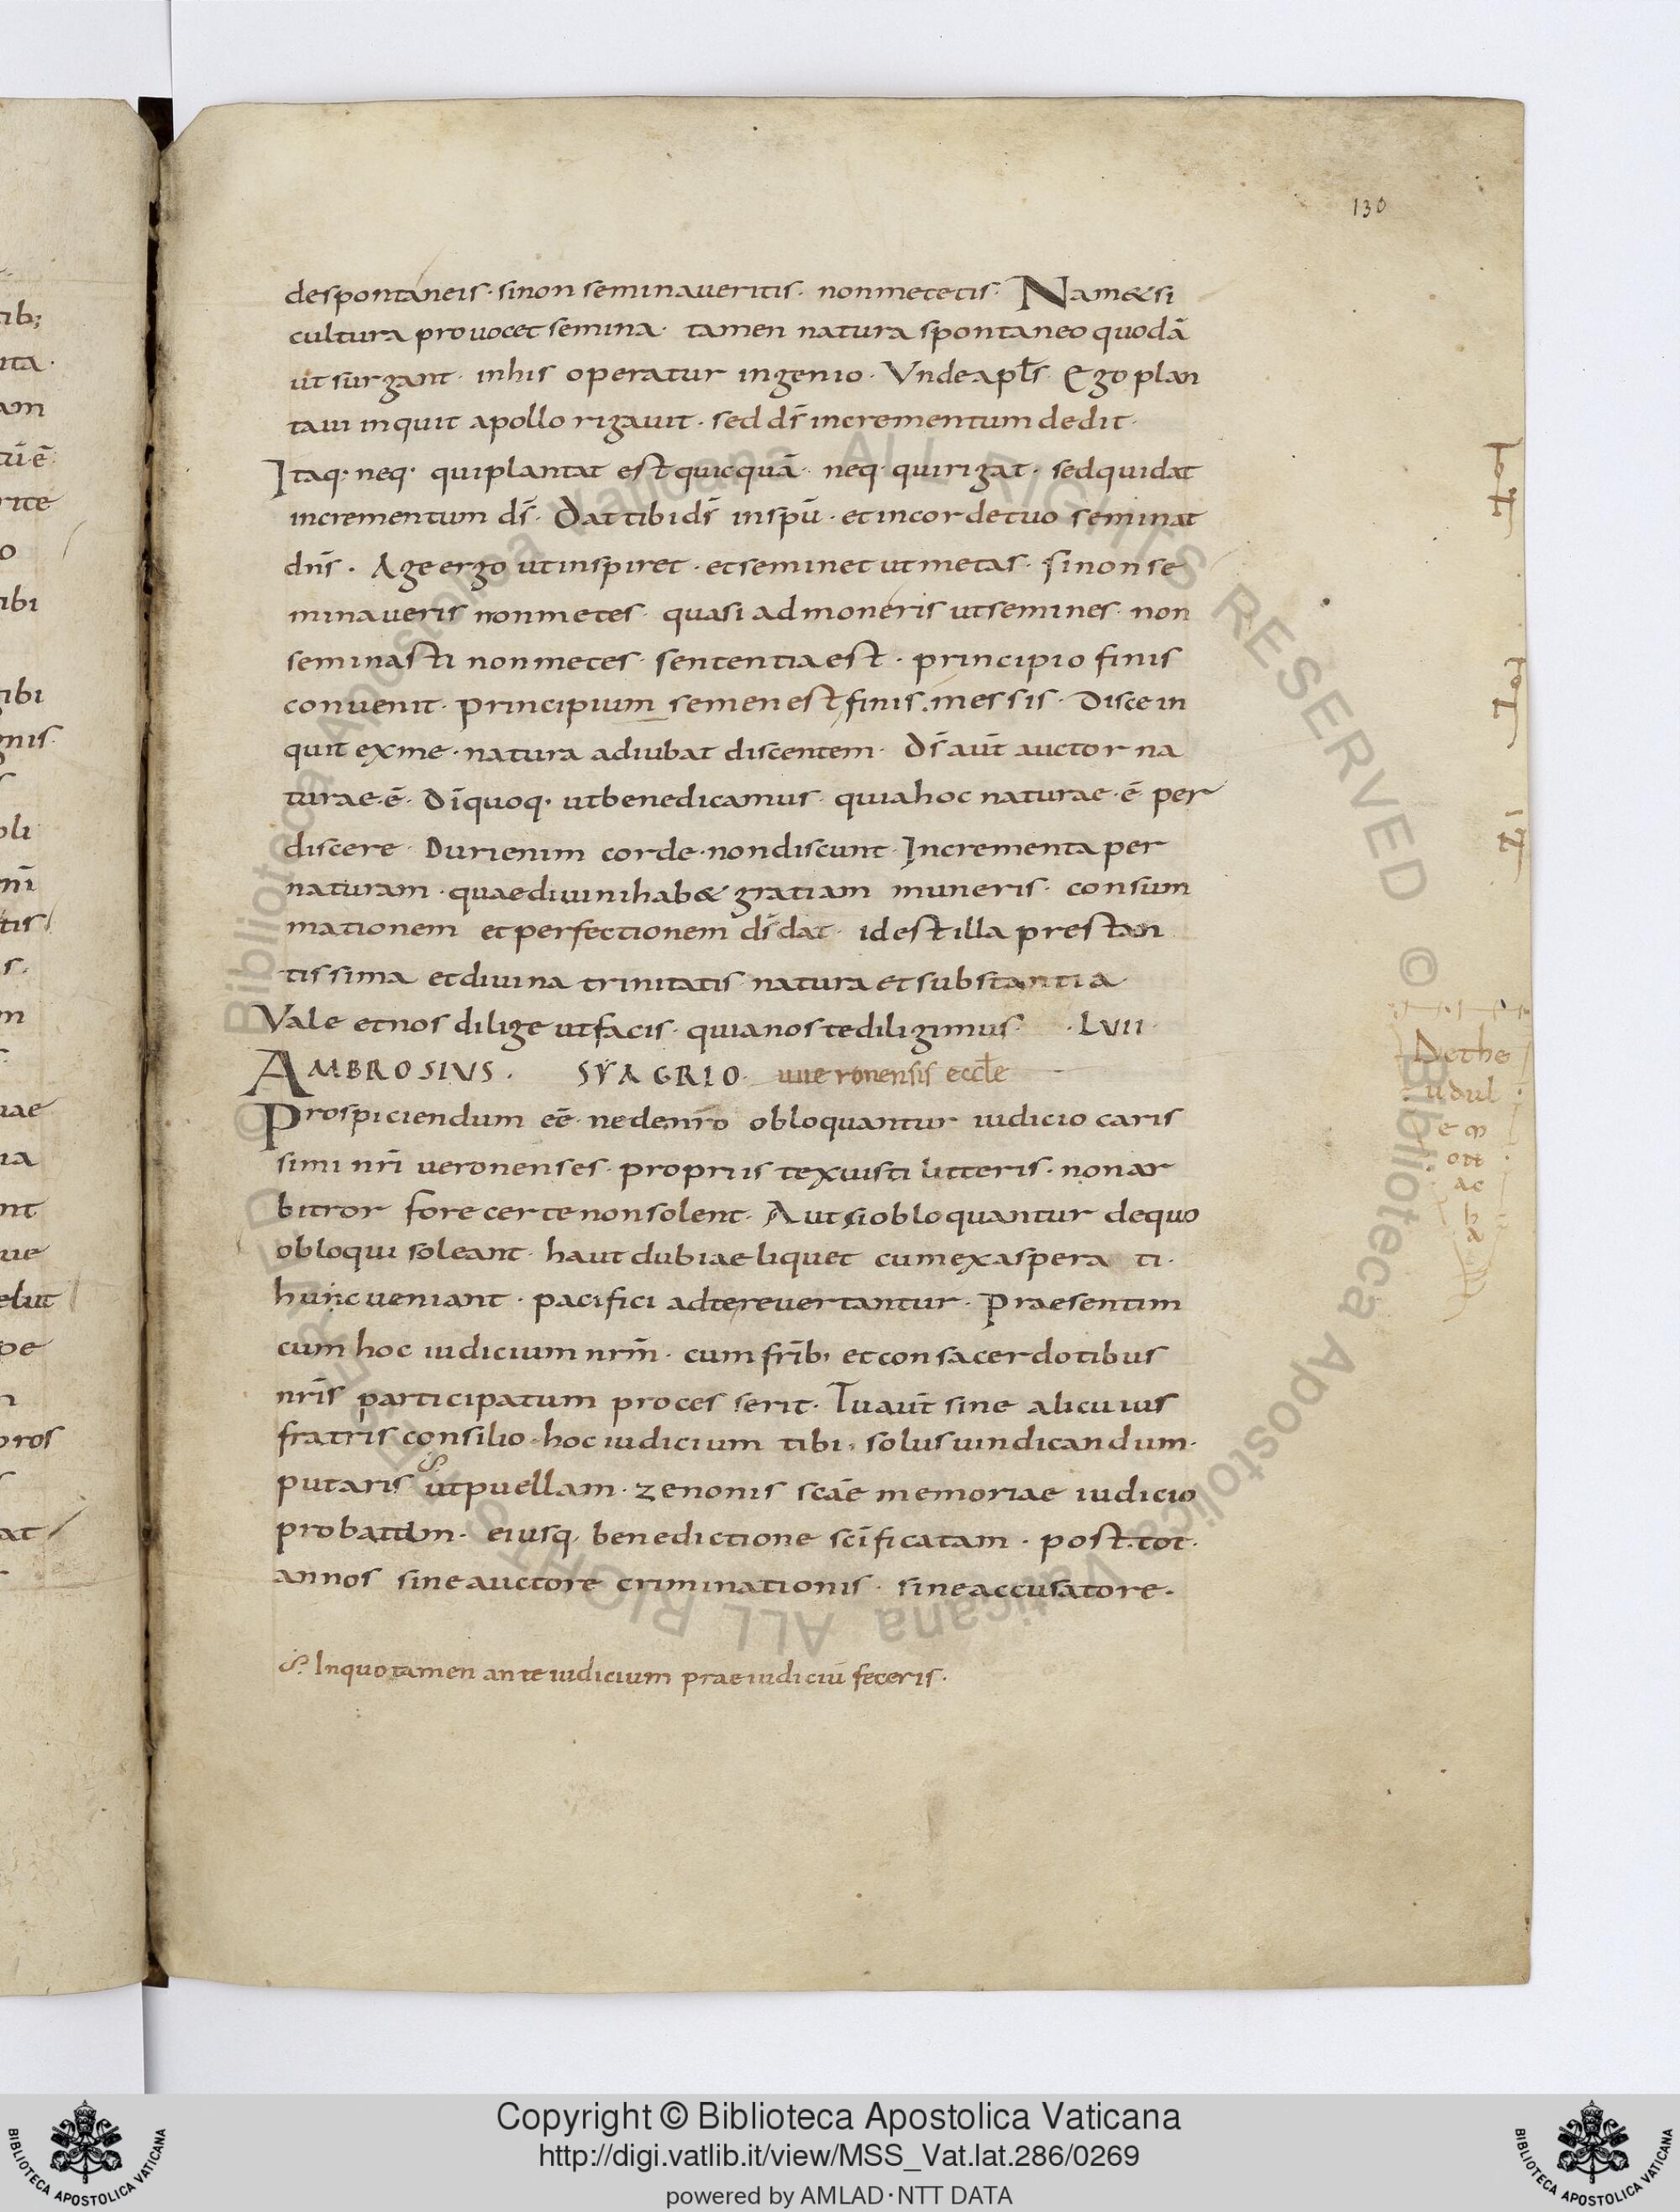 130
de spontaneis · si non seminaueritis · non metetis · Nam & si
cultura prouocet semina · tamen natura spontaneo quodā
ut surgant · in his operatur ingenio · Vnde apl̄s · Ego plan
taui inquit apollo rigauit · sed dс̄ incrementum dedit ·
Itaq· neq· qui plantat est quicquā · neq· qui rigat · sed qui dat
incrementum ds̄ · Dat tibi ds̄ in spū · et in corde tuo seminat
dns̄ · Age ergo ut inspiret · et seminet ut metas · si non se
minaueris non metes · quasi admoneris ut semines · non
seminasti non metes · sententia est · principio finis
conuenit · principium semen est, finis · messis · Disce in
quit ex me · natura adiubat discentem · Ds̄ aut̄ auctor na
turae · ē · Dī quoq· ut benedicamus · quia hoc naturae · ē per
discere · Duri enim corde · non discunt · Incrementa per
naturam · quae diuini hab& gratiam muneris · consum
mationem et perfectionem ds̄ dat · id est illa prestan
tissima et diuina trinitatis natura et substantia
Vale et nos dilige ut facis · quia nos te diligimus · · LVII ·
AMBROSIVS · SYAGRIO · uueronensis eccłe
Prospiciendum eē · ne de nr̄o obloquantur iudicio caris
simi nr̄i ueronenses · propriis texuisti litteris · non ar
bitror fore certe non solent · Aut si obloquantur de quo
obloqui soleant · haut dubiae liquet cum exaspera ti ·
hunc ueniant · pacifici ad te reuertantur · Praesentim
cum hoc iudicium nrm̄ · cum frīb; et consacerdotibus
nrīs participatum processerit · Tu aut̄ sine alicuius
fratris consilio · hoc iudicium tibi · solus uindicandum ·
putaris ut puellam · zenonis scāe memoriae iudicio
probatum · eiusq, benedictione scīficatam · post · tot ·
annos sine auctore criminationis · sine accusatore ·
In quo tamen ante iudicium praeiudiciū feceris ·
De the
udul
e m
ott
ac
Copyright © Biblioteca Apostolica Vaticana
http://digi.vatlib.it/view/MSS_Vat.lat.286/0269
powered by AMLAD·NTT DATA
BIBLIOTECA APOSTOLICA VATICANA
BIBLIOTECA APOSTOLICA VATICANA